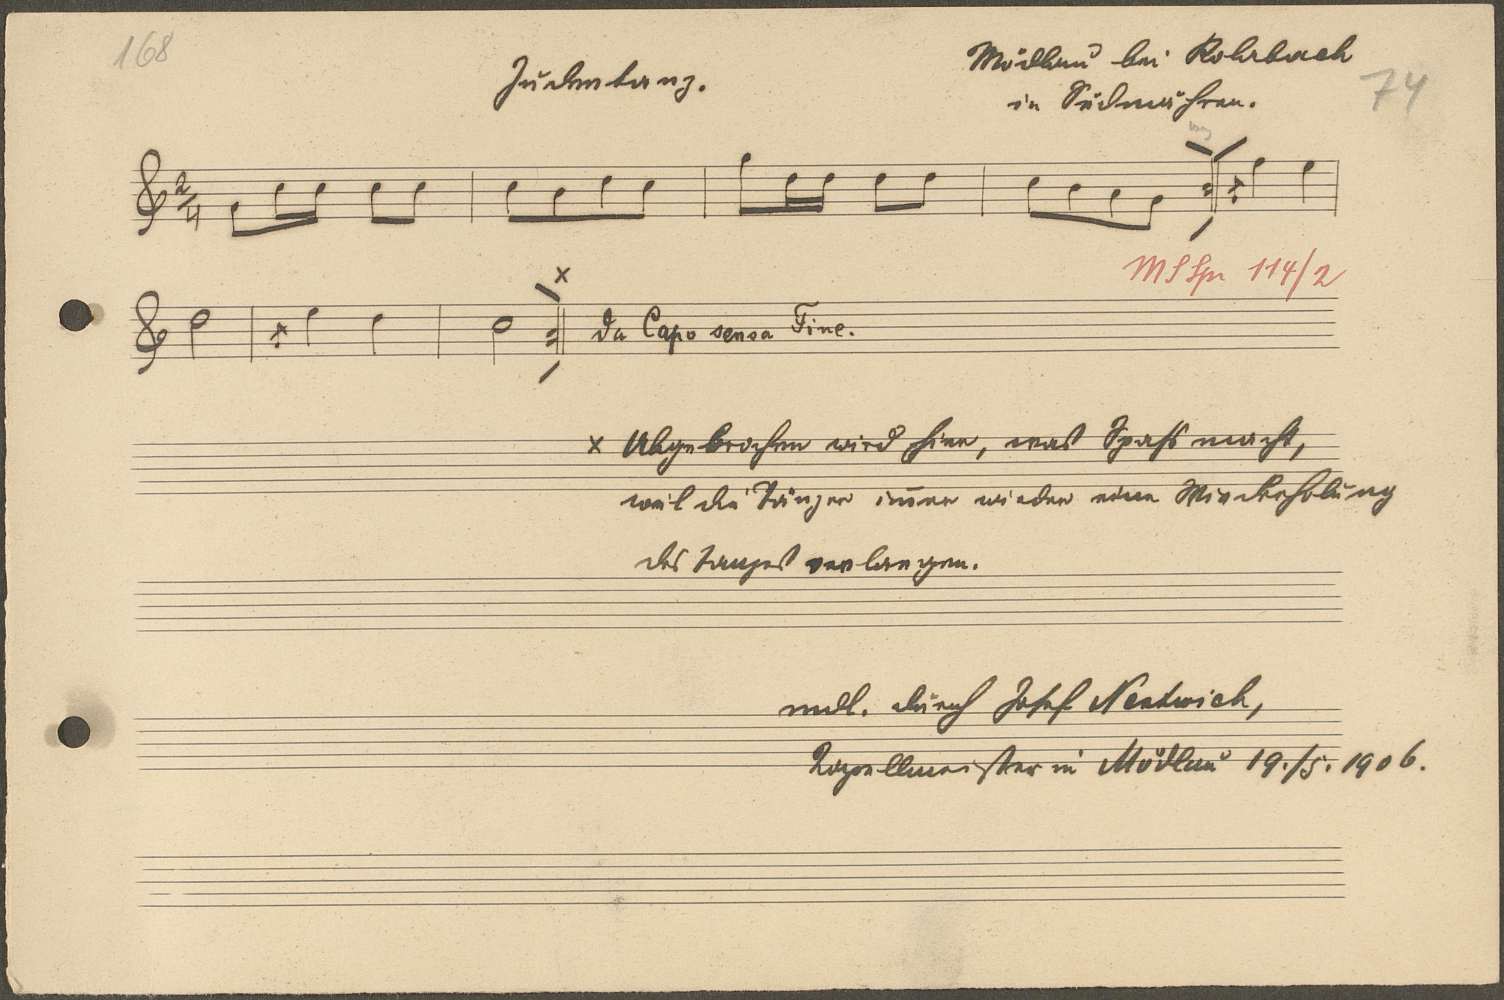 168
Judentanz.
Mödlau bei Rohrbach
in Südmähren.
74
2/4
MS Spr 114/2
x
Da Capo sensa Fine.
x Abgebrochen wird hier, was Spaß macht,
weil die Tänzer im̅er wieder eine Wiederholung
des Tanzes verlangen.
mdl. durch Josef Nentwich,
Kapellmeister in Mödlau 19./5. 1906.